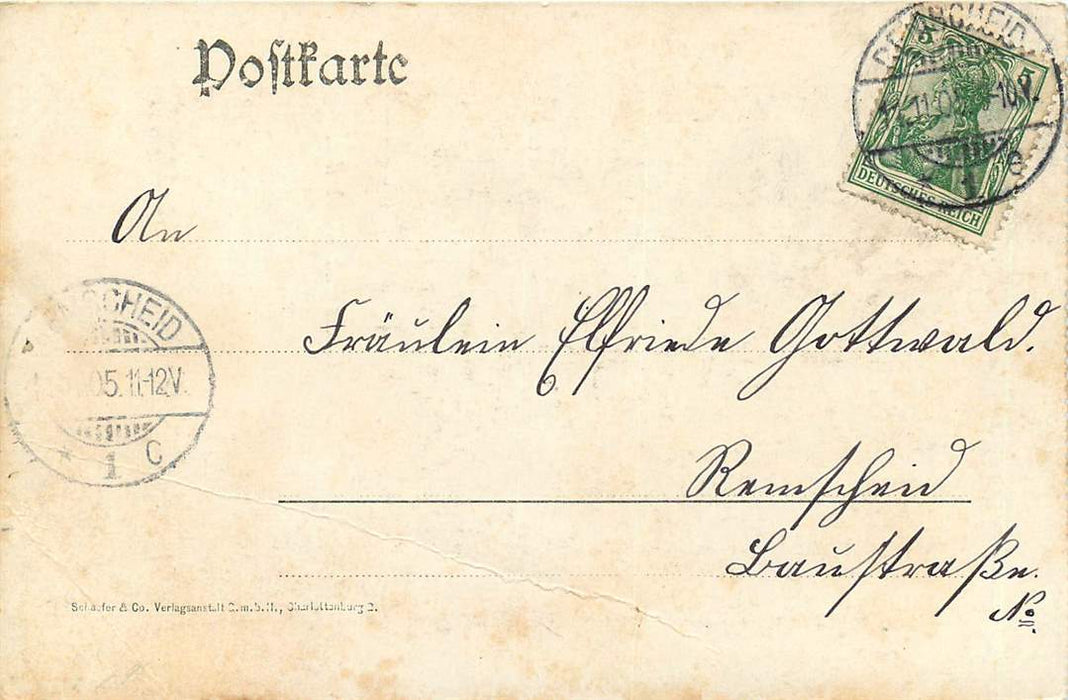 Postkarte
5 5
DEUTSCHES REICH
REMSCHEID
11.05. 10-
* 1 e
An
SCHEID
05. 11-12V.
* 1 C
Fräulein Elfriede Gottwald.
Remscheid
Baustraße.
No.
Schaefer & Co. Verlagsanstalt G.m.b.H., Charlottenburg 2.